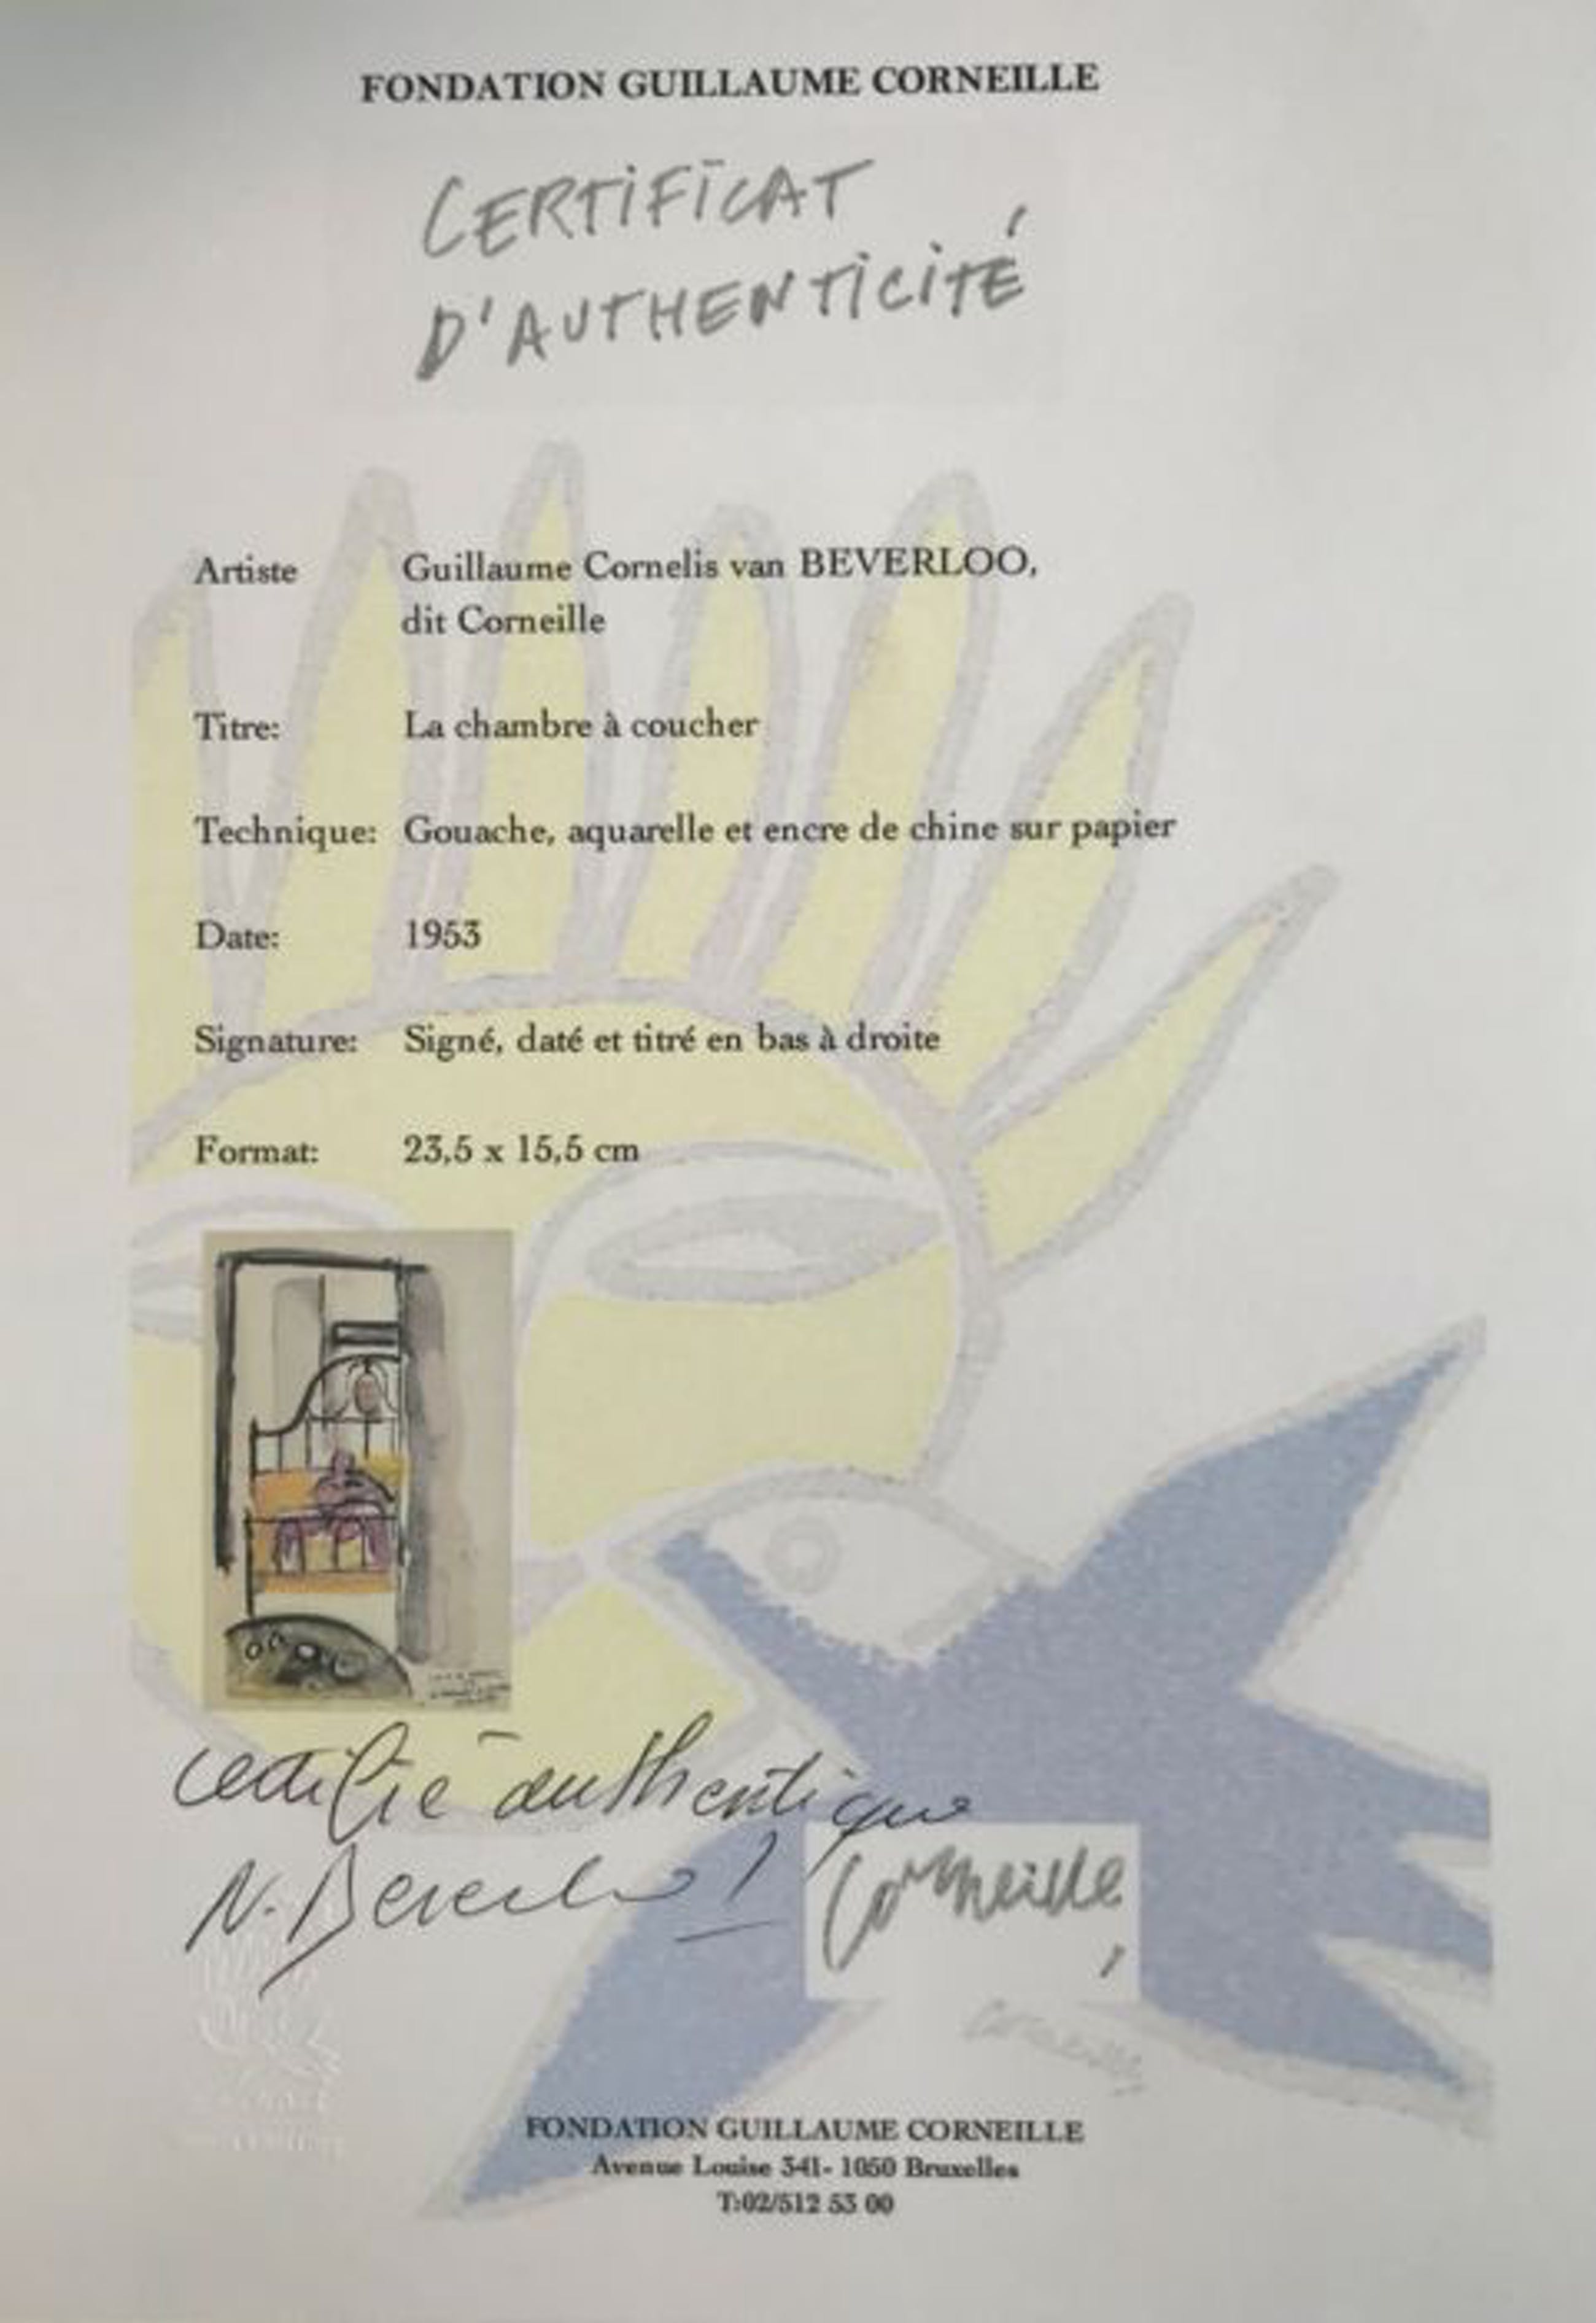 FONDATION GUILLAUME CORNEILLE
CERTIFICAT
D'AUTHENTICITÉ
Artiste Guillaume Cornelis van BEVERLOO,
dit Corneille
Titre: La chambre à coucher
Technique: Gouache, aquarelle et encre de chine sur papier
Date: 1953
Signature: Signé, daté et titré en bas à droite
Format: 23,5 x 15,5 cm
certifié authentique
Corneille
Corneille
FONDATION GUILLAUME CORNEILLE
Avenue Louise 341- 1050 Bruxelles
T:02/512 53 00